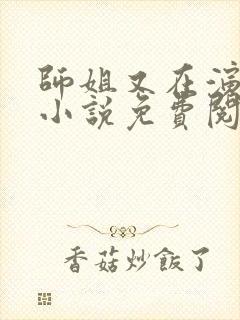 師姐又在演
小說免費閱
香菇炒飯了